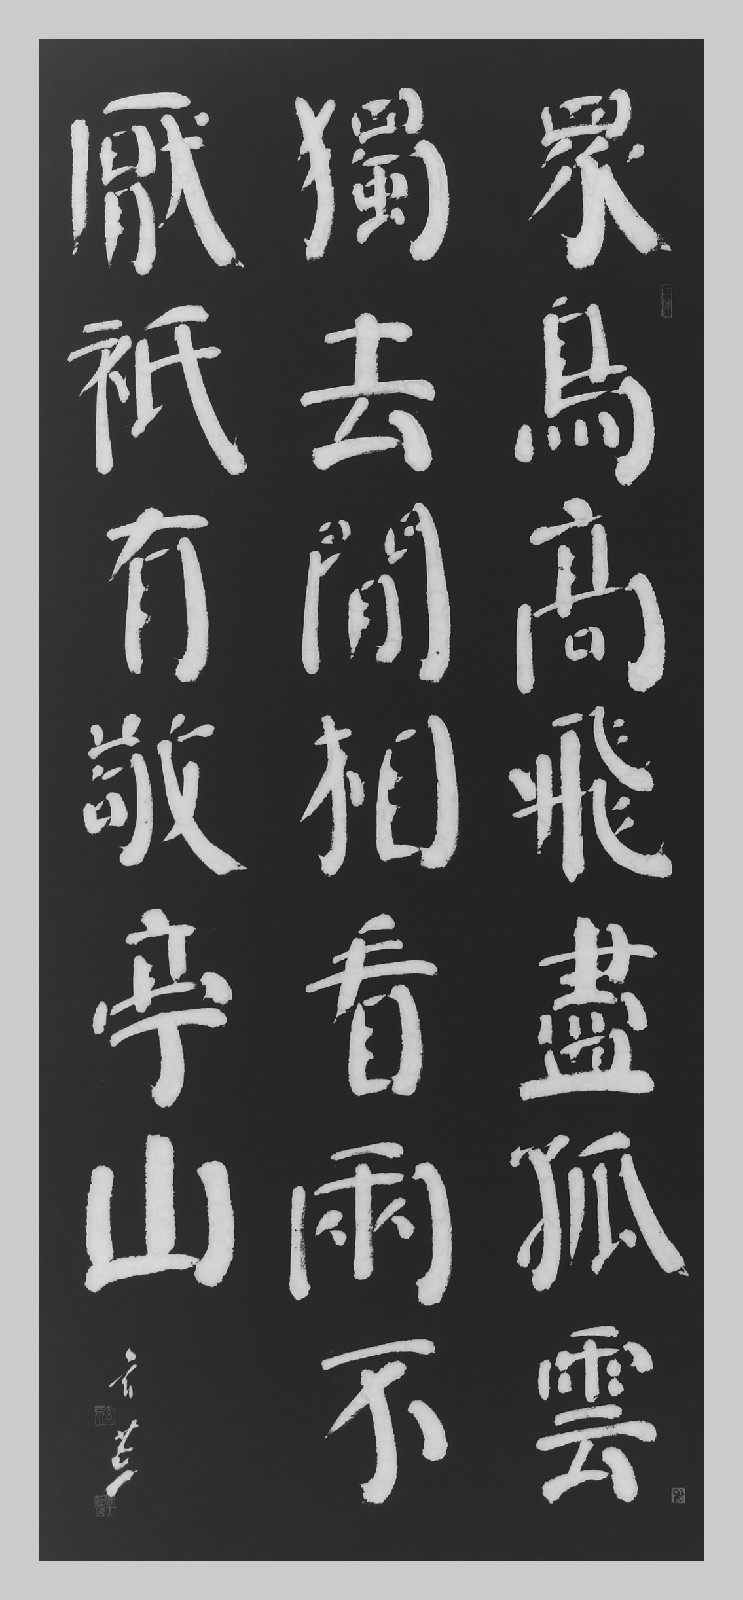 眾鳥高飛盡孤雲
獨去閒相看兩不
厭衹有敬亭山